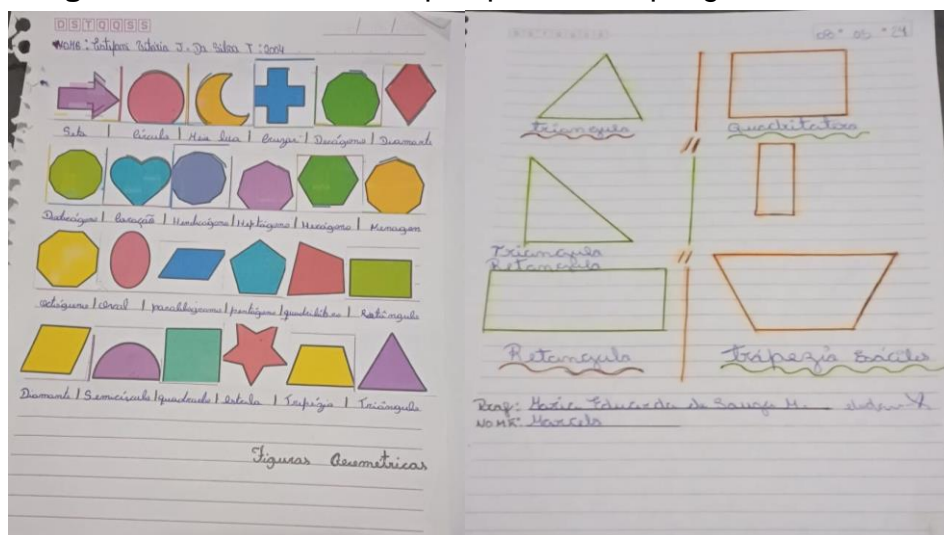 DSTQQSS
NOME: Silva T: 2004
Seta | Círculo | Meia lua | Cruzar | Decágono | Diamante
Dodecágono | Coração | Hendecágono | Heptágono | Hexágono | Nonágon
octógono | Oval | paralelogramo | pentágono | quadrilátero | Retângulo
Diamante | Semicírculo | quadrado | estrela | Trapézio | Triângulo
Figuras Geometricas
triangulo
Triangulo
Retangulo
Retangulo
trapezio
Prof: Maria Eduarda de Souza M.
NOME: Marcelo